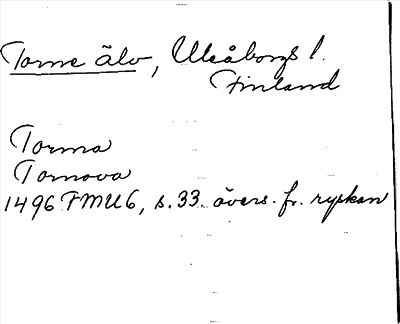 Torne älv, Uleåborgs l.
Finland
Torma
Tornova
1496 FMU6, s. 33. övers. fr. ryskan